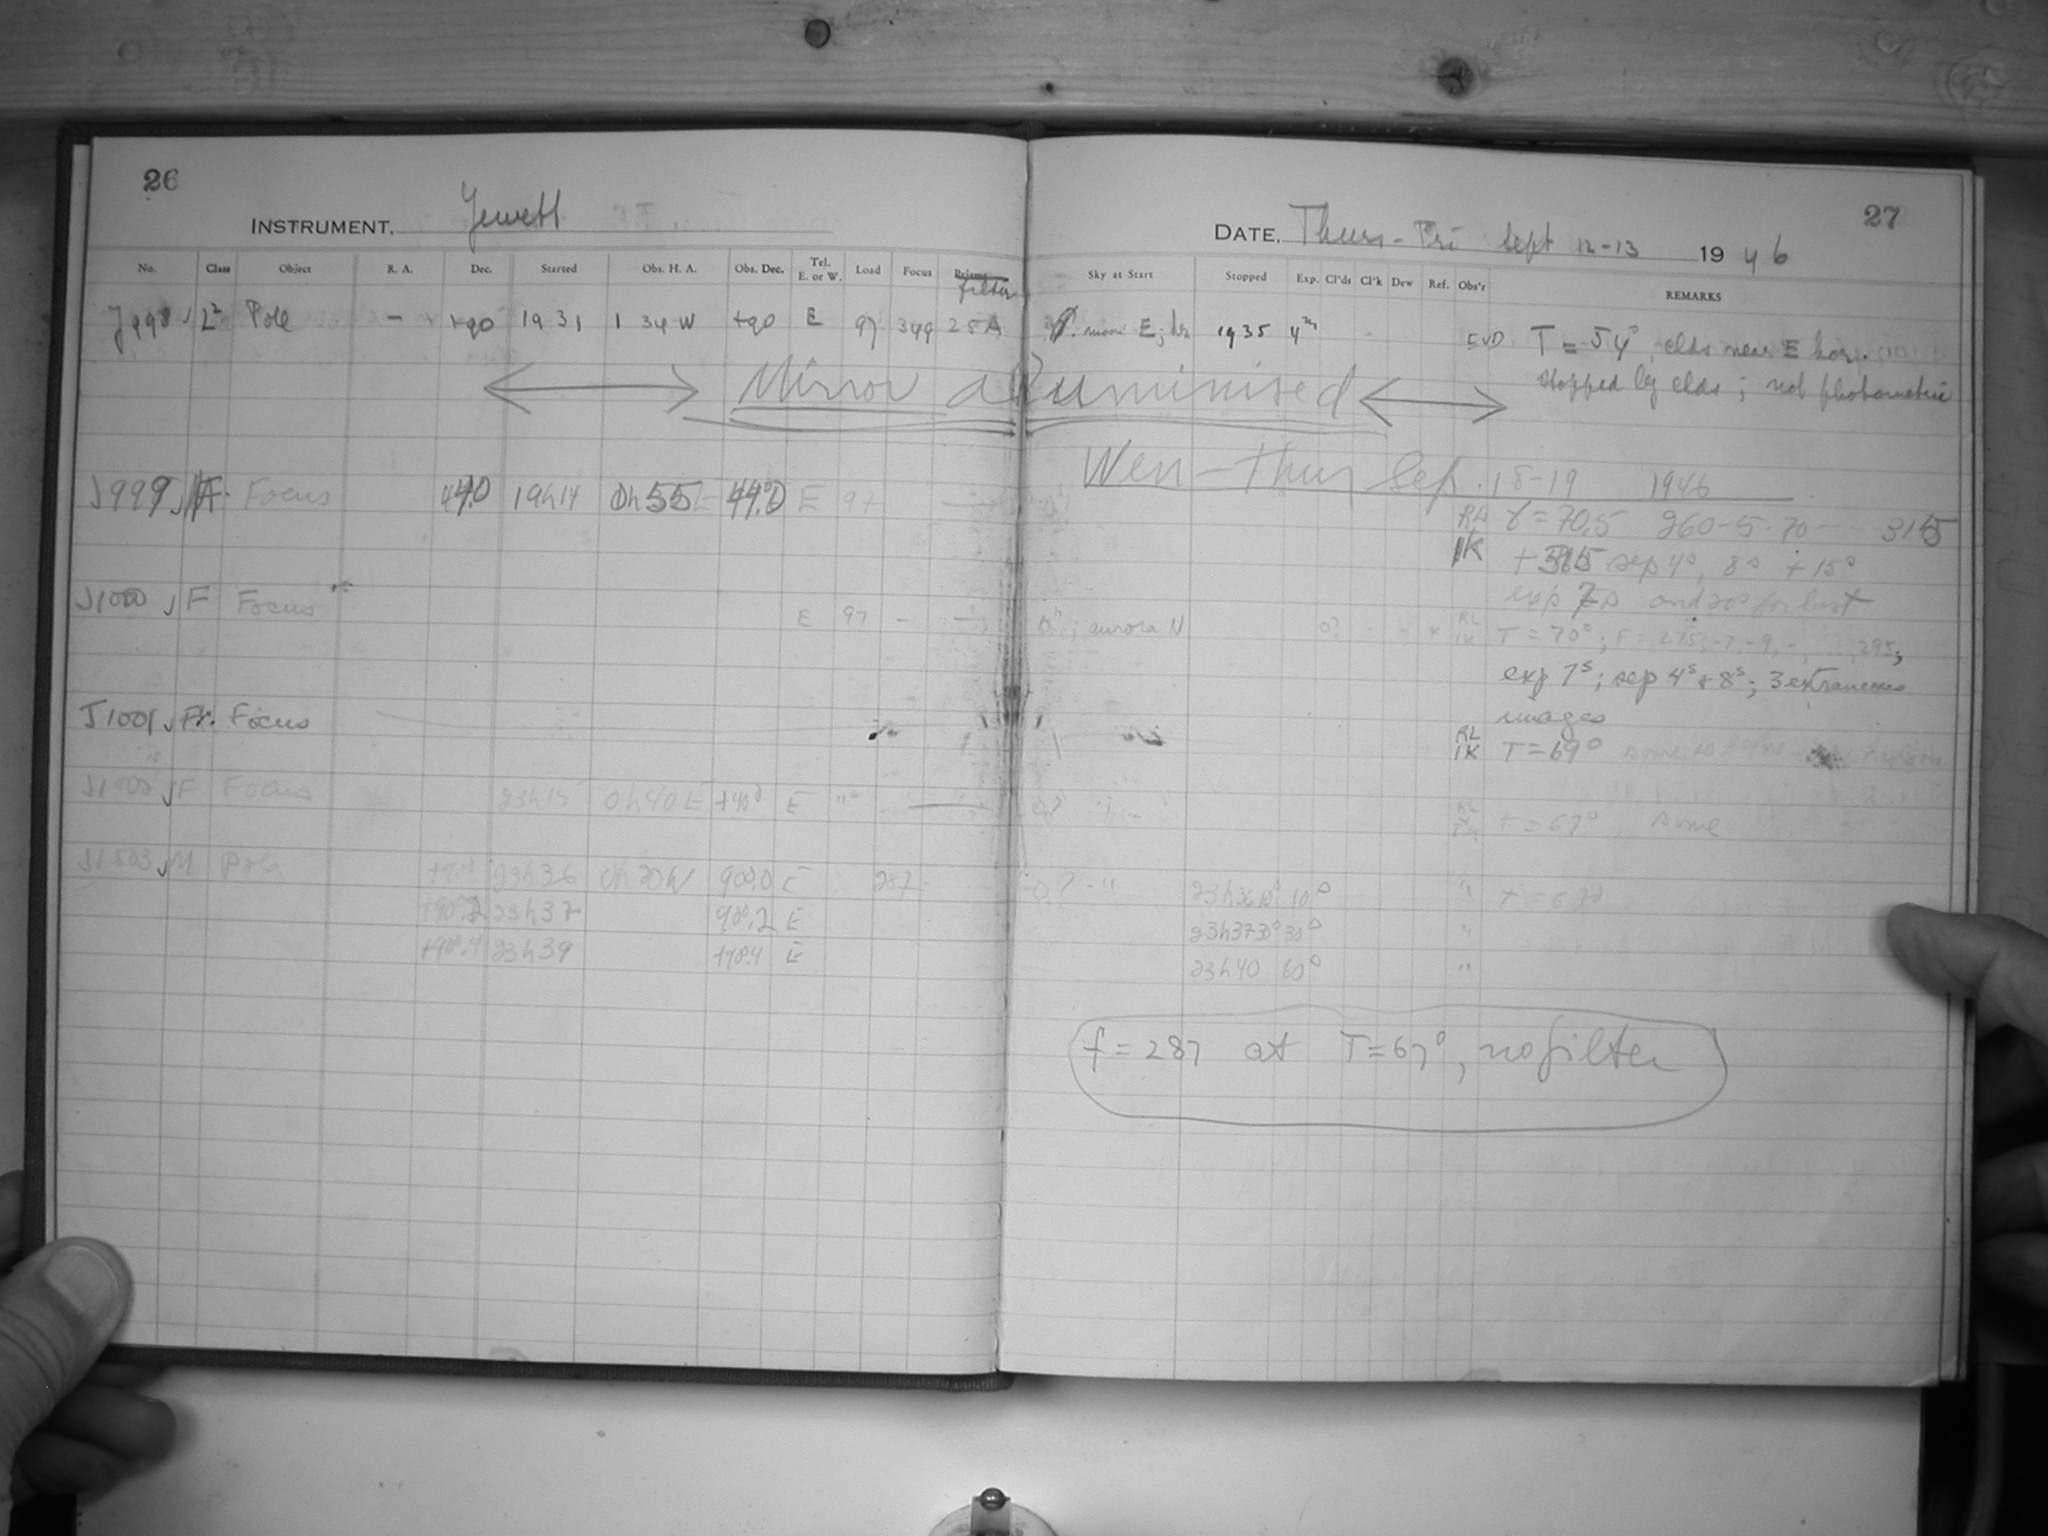 26
INSTRUMENT, Jewett
No. Class Object R. A. Dec. Started Obs. H. A. Obs. Dec. Tel. E. or W. Load Focus Prisms filter
J998 L2 Pole - +90 1931 1 34 W +90 E 97 349 25A
Mirror aluminised
J999 F. Focus 44.0 19h14 0h55E 44.0 E 97
J1000 F Focus E 97 - -
J1001 Fr. Focus
J1002 F Focus 23h15 0h40E +40° E "
J1003 M Pole +90° 23h36 0h20W 90°.0 E 287
+90°.2 23h37 90°.2 E
+90°.4 23h39 +90.4 E
27
DATE, Thurs-Fri Sept 12-13 1946
Sky at Start Stopped Exp. Cl'ds Cl'k Dew Ref. Obs'r REMARKS
moon E; 1935 4m SVD T = 54°, clds near E hor.
stopped by clds; not photometric
Wen-Thur Sep. 18-19 1946
RL IK T=70.5 260-5-70- 315
+315 sep 4s, 8s + 15s
exp 7s and 20s for last
0?; aurora N 0? - - RL IK T = 70°; F = 275, -7, -9, -, 295;
exp 7s; sep 4s + 8s; 3 extraneous
images
RL IK T=69° some
0? RL IK T=67° some
0? - " 23h36 10s 10s " T=67°
23h37 30s 30s "
23h40 60s "
f = 287 at T=67°, no filter